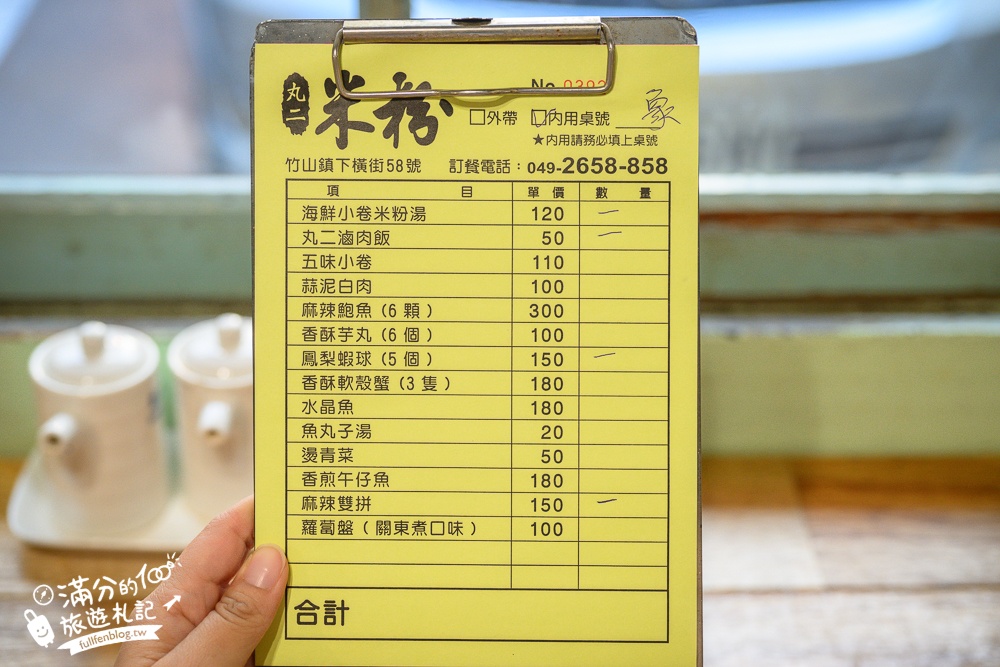 丸二 米粉
No 0302
□外帶 □內用桌號 象
★內用請務必填上桌號
竹山鎮下橫街58號 訂餐電話：049-2658-858
項 目 單 價 數 量
海鮮小卷米粉湯 120 一
丸二滷肉飯 50 一
五味小卷 110
蒜泥白肉 100
麻辣鮑魚（6 顆） 300
香酥芋丸（6 個） 100
鳳梨蝦球（5 個） 150 一
香酥軟殼蟹（3 隻） 180
水晶魚 180
魚丸子湯 20
燙青菜 50
香煎午仔魚 180
麻辣雙拼 150 一
蘿蔔盤（關東煮口味） 100
合計
滿分的100
旅遊札記
fullfenblog.tw